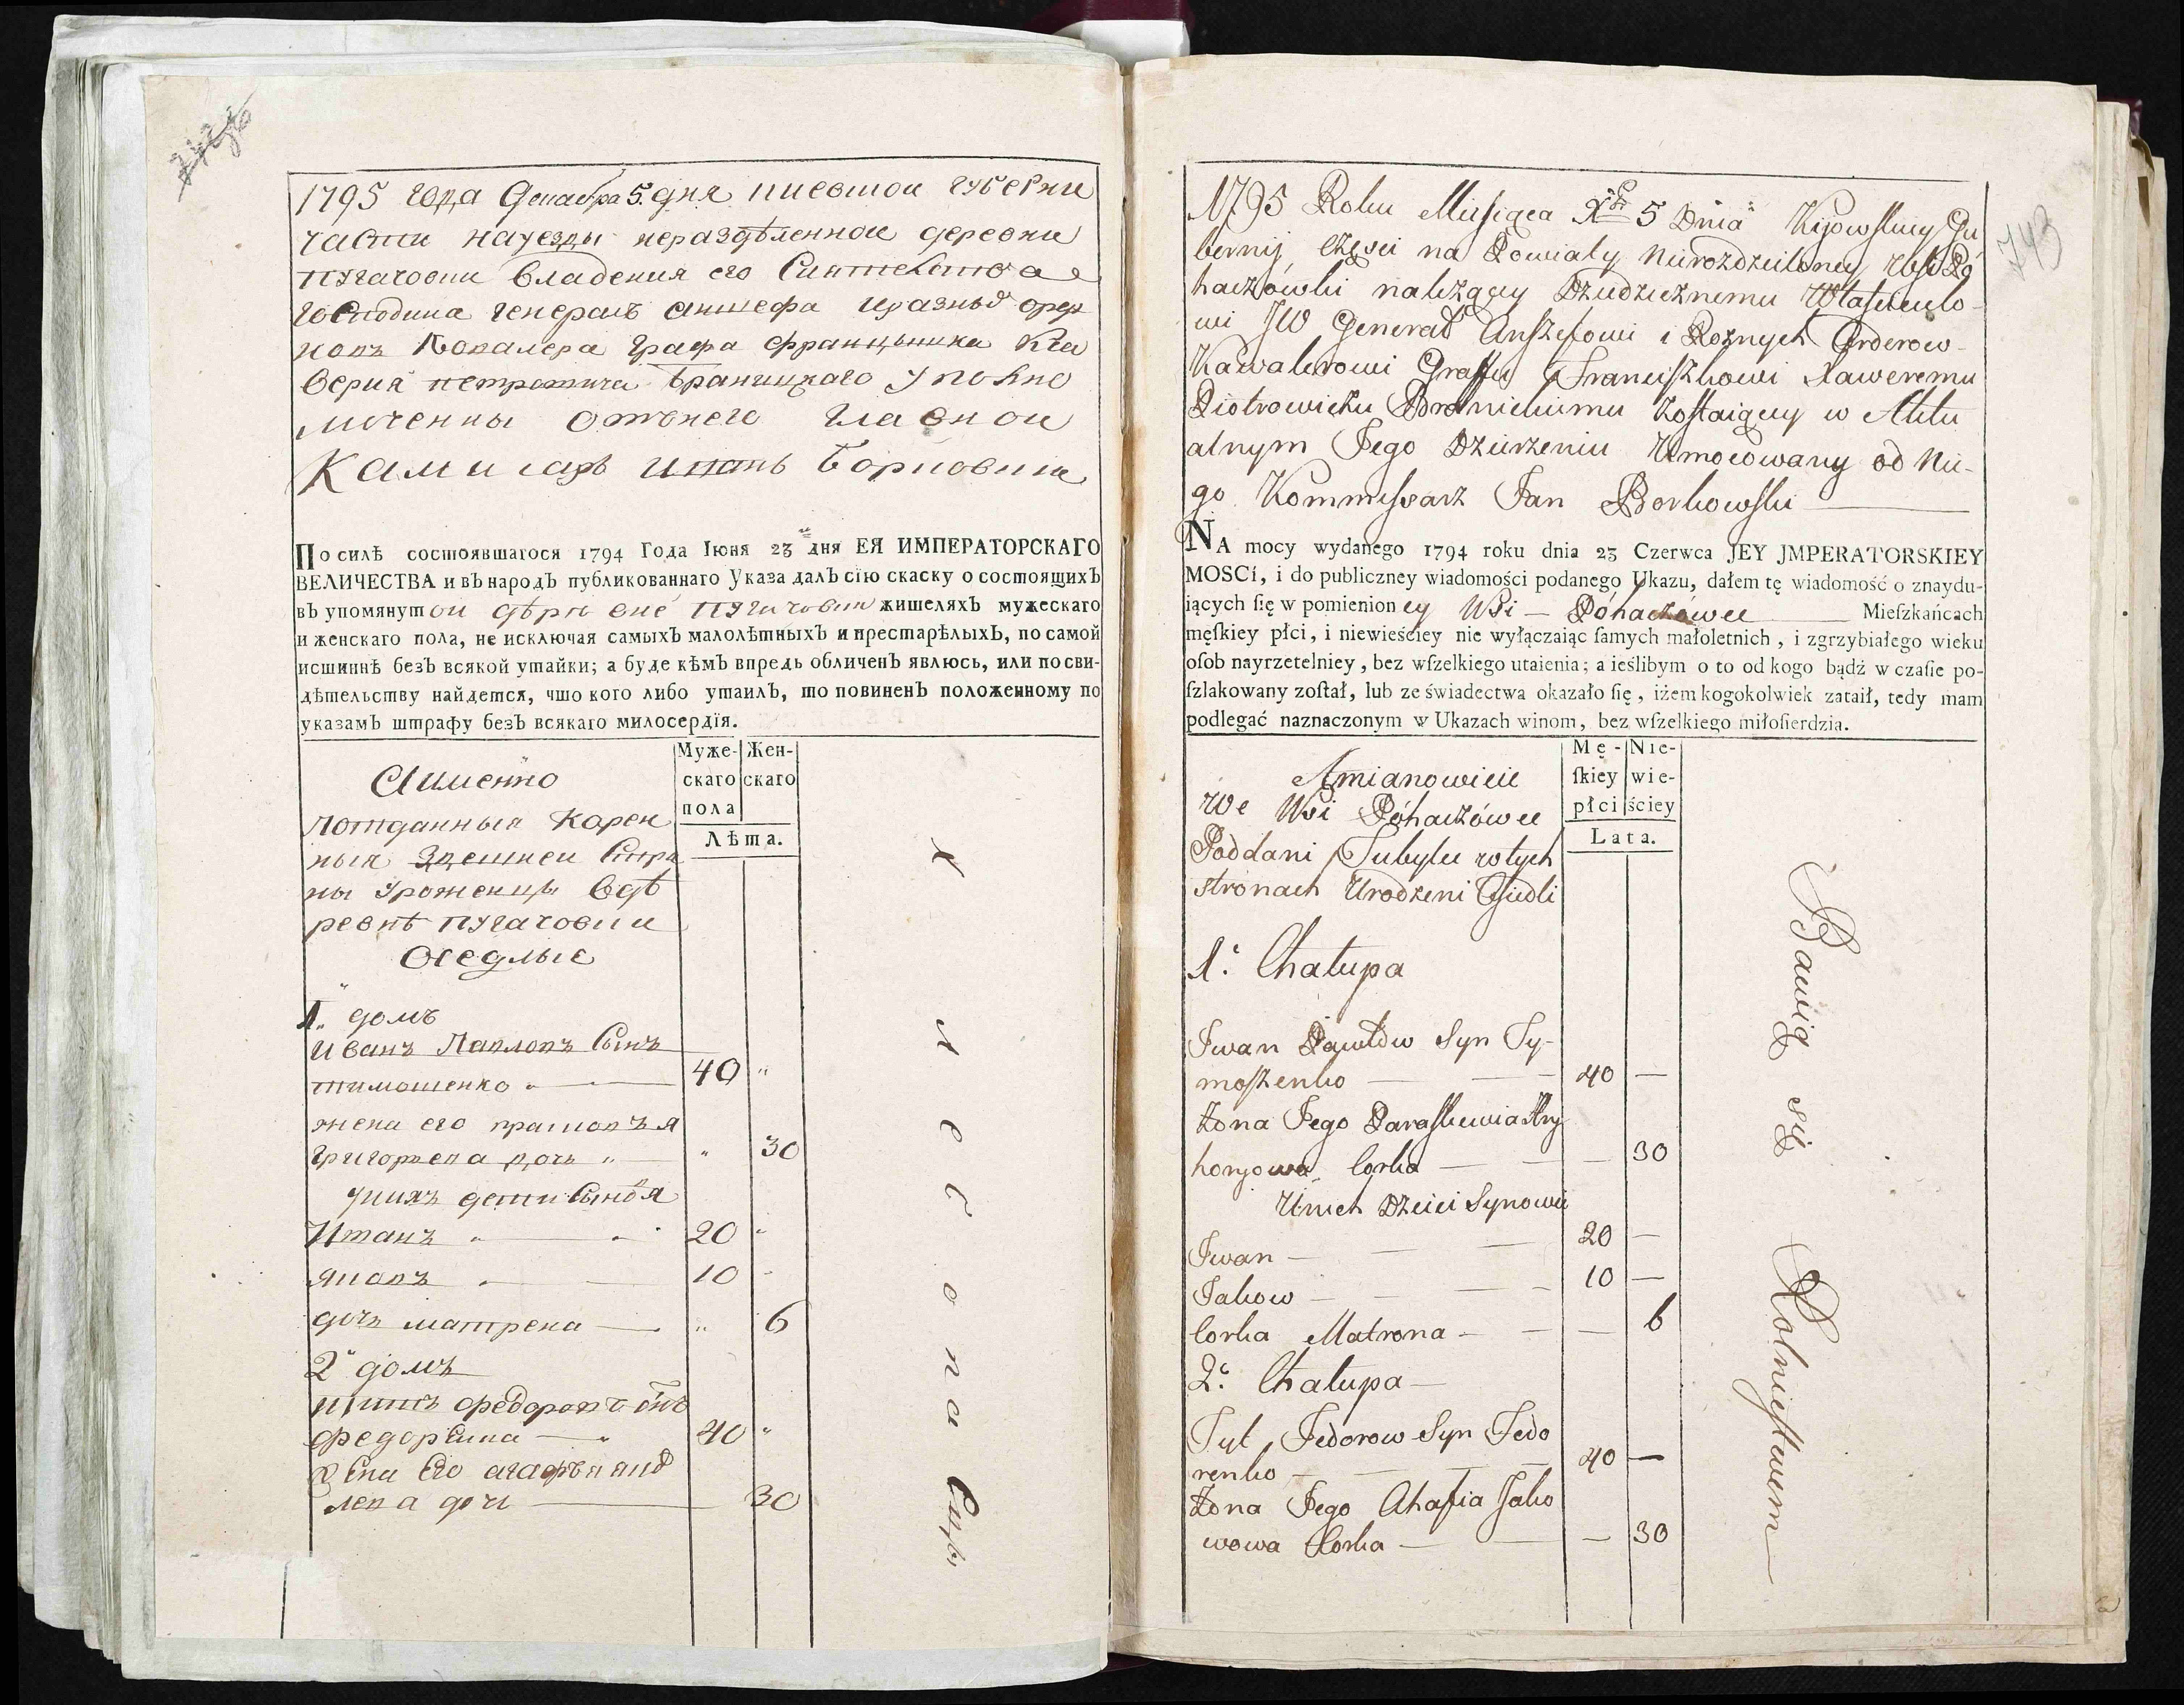 1795 года Декабра 5. дня киевской губерни
части науезды нераздѣленное деревни
пугачовки владения его Сиятельства
господина генералъ аншефа иразныхъ орде
новъ Ковалера графа францышка Кса
верия петровича браницкаго уполно
моченны отънего главнои
Камисаръ Иванъ борковски
По силѣ состоявшагося 1794 Года Іюня 23 дня ЕЯ ИМПЕРАТОРСКАГО
ВЕЛИЧЕСТВА и въ народъ публикованнаго Указа далъ сїю скаску о состоящихъ
въ упомянутои дѣревне пугачовки жителяхъ мужескаго
и женскаго пола, не исключая самыхъ малолѣтныхъ и престарѣлыхъ, по самой
истиннѣ безъ всякой утайки; а буде кѣмъ впредь обличенъ явлюсь, или по сви-
дѣтельству найдется, что кого либо утаилъ, то повиненъ положенному по
указамъ штрафу безъ всякаго милосердїя.
Муже-скаго пола
Жен-скаго
Лѣта.
Аименно
Потданныя Карен
ныя здешнеи Старо
ны уроженцы вдѣ
ревнѣ пугачовки
Оседлые
1" домъ
Иванъ Павловъ Сынъ
тимошенко 40 "
жена его прасковъя
григорьева дочь " 30
уних дети сыновя
Иванъ 20 "
яковъ 10 "
дочь матрена " 6
2" домъ
титъ федоровъ снъ
федоренка 40 "
жена Его агафья яков
лева дочь 30
хлебопашцы
743
1795 Roku Miesiąca Xbr 5 Dnia Kijowskiey Gu
bernij, części na Powiaty nierozdzieloney wsi Pó
haczówki należącey Dziedzicznemu Właścicielo
wi JW Generał Anszefowi i Rożnych Orderow
Kawalerowi Graffu Franciszkowi Xaweremu
Piotrowiczu Branickiemu Zostaiącey w Aktu
alnym Jego Dzierżeniu Umocowany od Nie-
go Kommissarz Jan Borkowski
NA mocy wydanego 1794 roku dnia 23 Czerwca JEY JMPERATORSKIEY
MOSCi, i do publiczney wiadomości podanego Ukazu, dałem tę wiadomość o znaydu-
iących ſię w pomienioney Wsi — Póhaczówce Mieſzkańcach
męſkiey płci, i niewieściey nie wyłączaiąc ſamych małoletnich, i zgrzybiałego wieku
oſob nayrzetelniey, bez wſzelkiego utaienia; a ieślibym o to od kogo bądź w czaſie po-
ſzlakowany zoſtał, lub ze świadectwa okazało ſię, iżem kogokolwiek zataił, tedy mam
podlegać naznaczonym w Ukazach winom, bez wſzelkiego miłoſierdzia.
Mę-ſkiey płci
Nie-wie-ściey
Lata.
Amianowicie
We Wsi Póhaczówce
Poddani Tubylce wtych
stronach Urodzeni Osiedli
1. Chałupa
Iwan Pawłow Syn Ty-
moszenko 40 —
Zona Jego Paraskewia Hry
horyowa Corka — 30
Unich Dzieci Synowie
Iwan 20 —
Jakow 10 —
Corka Matrona — 6
2. Chałupa
Tyt Fedorow Syn Fedo
renko 40 —
Zona Jego Ahafia Jako
wowa Corka — 30
Bawią się Rolnictwem